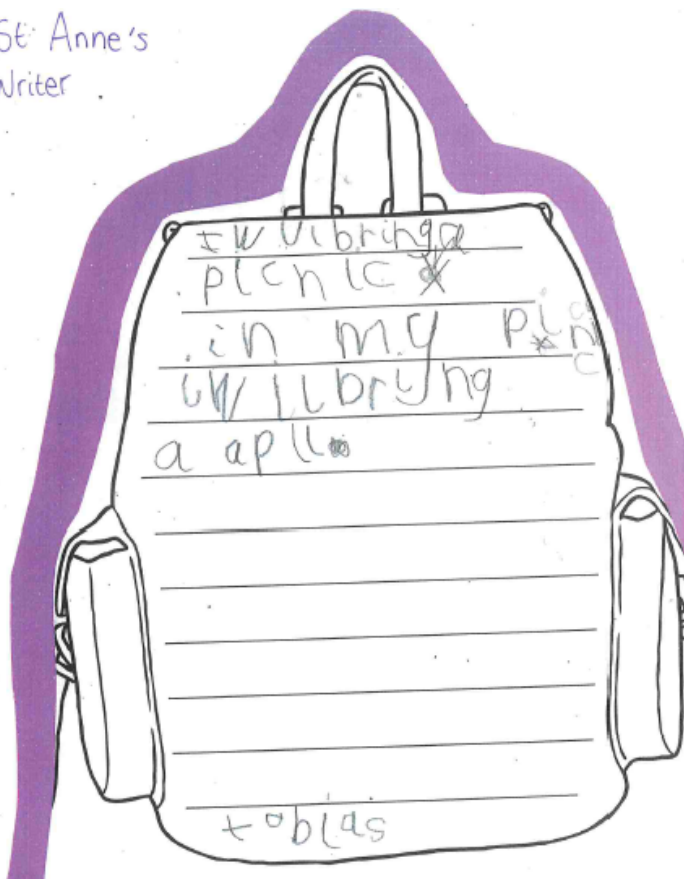 St Anne's
Writer
I w Ul bring a
picnic
in my picnic
i w il briyng
a apll
tobias